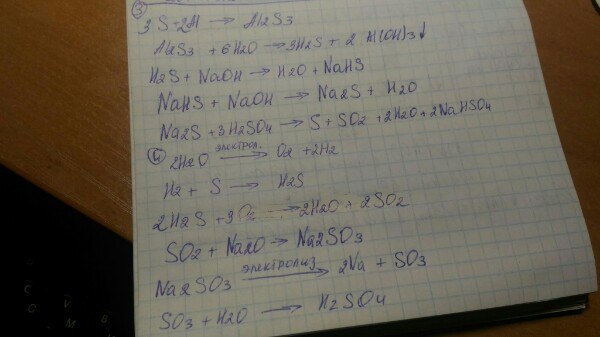 ③
3 S+2Al → Al2S3
Al2S3 + 6H2O → 3H2S + 2 Al(OH)3↓
H2S + NaOH → H2O + NaHS
NaHS + NaOH → Na2S + H2O
Na2S + 3H2SO4 → S + SO2 + 2H2O + 2NaHSO4
④ 2H2O электрол.→ O2 + 2H2
H2 + S → H2S
2H2S + 3O2 → 2H2O + 2SO2
SO2 + Na2O → Na2SO3
Na2SO3 электролиз→ 2Na + SO3
SO3 + H2O → H2SO4